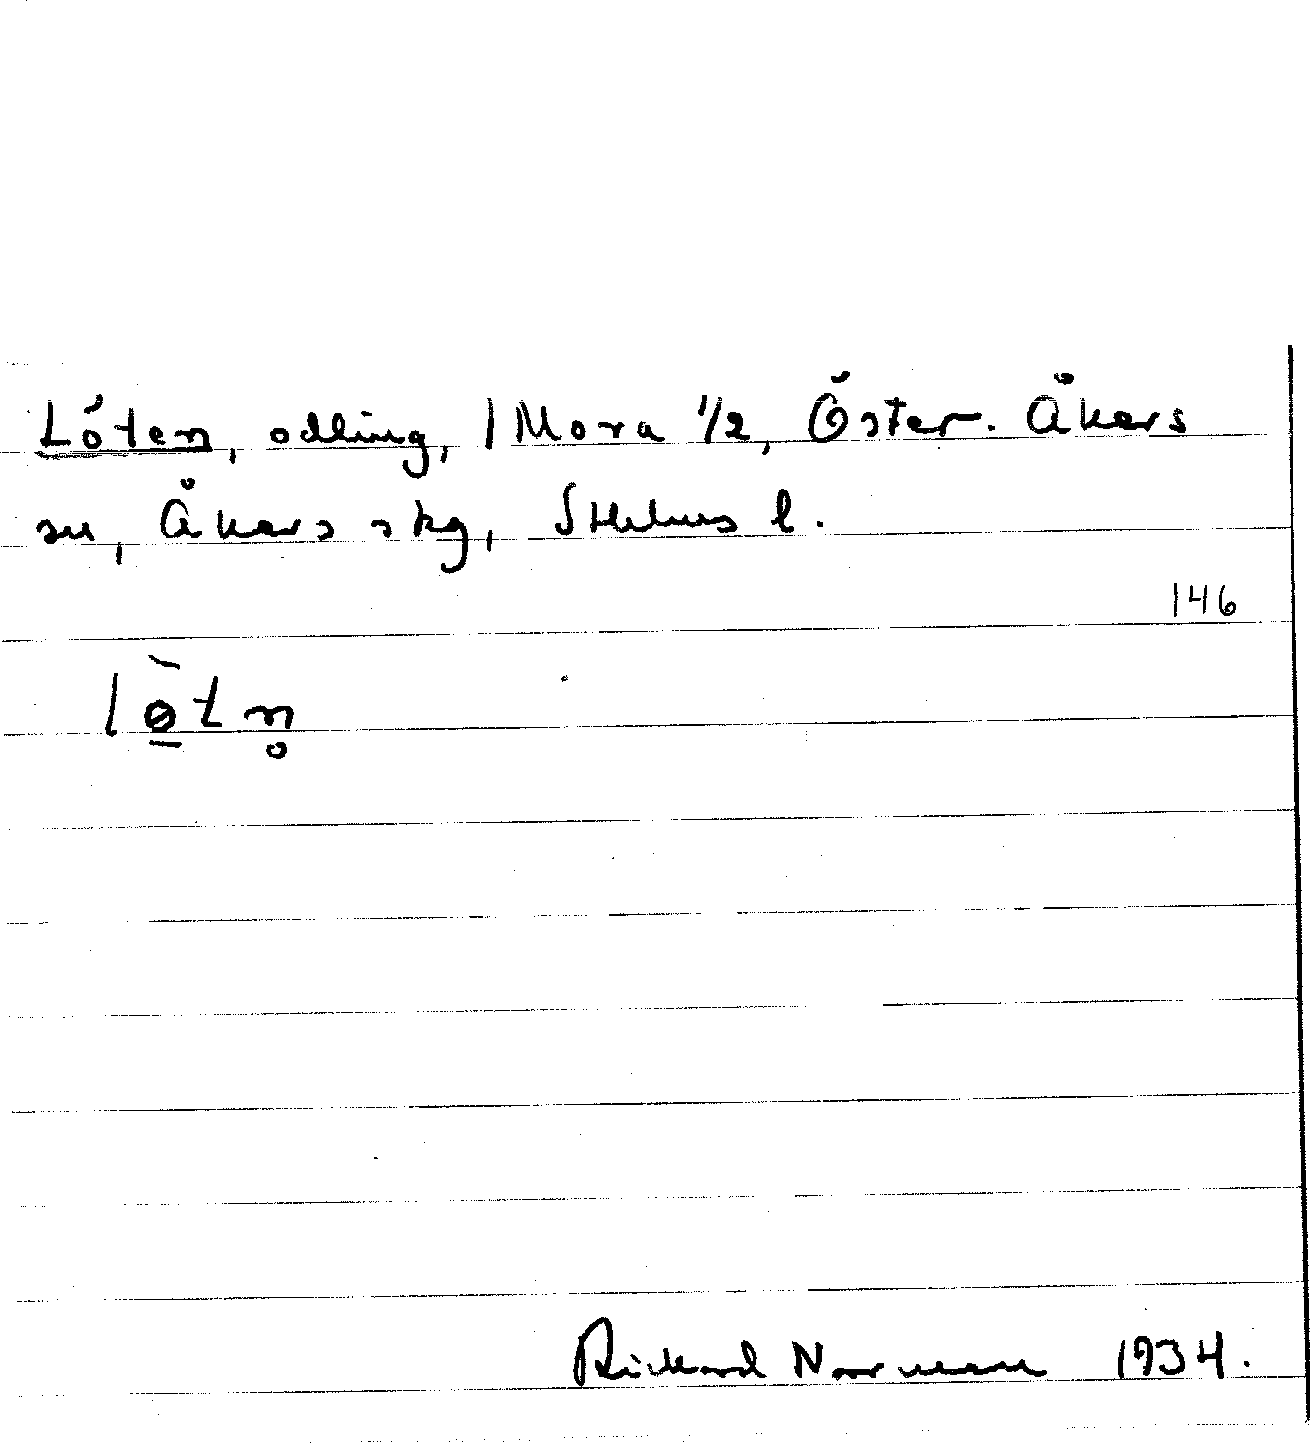 Löten, odling, 1 Mora 1/2, Öster-Åkers
sn, Åkers skg, Sthlms l.
146
lø̱̀tn̥
Rickard Norman 1934.